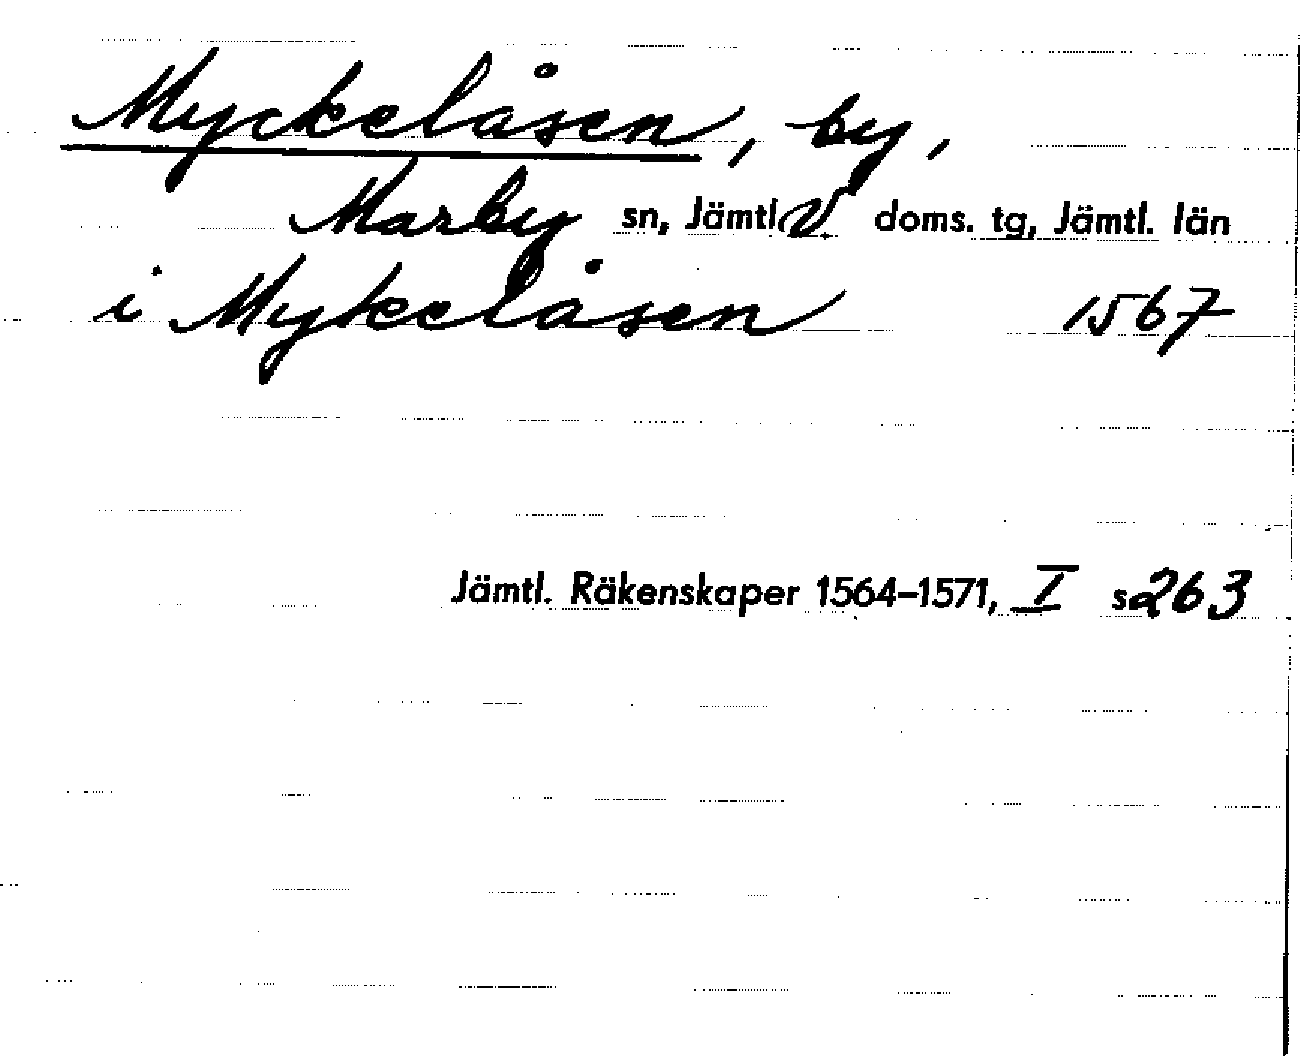 Myckelåsen, by,
Marby sn, Jämtl V. doms. tg, Jämtl. län
i Mykelåsen 1567
Jämtl. Räkenskaper 1564–1571, I s 263